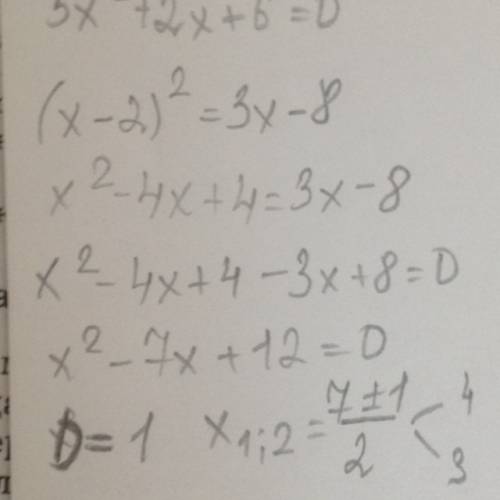 +2x+6=0
(x-2)²=3x-8
x²-4x+4=3x-8
x²-4x+4-3x+8=0
x²-7x+12=0
D=1 x₁;₂=(7±1)/2 < 4 3